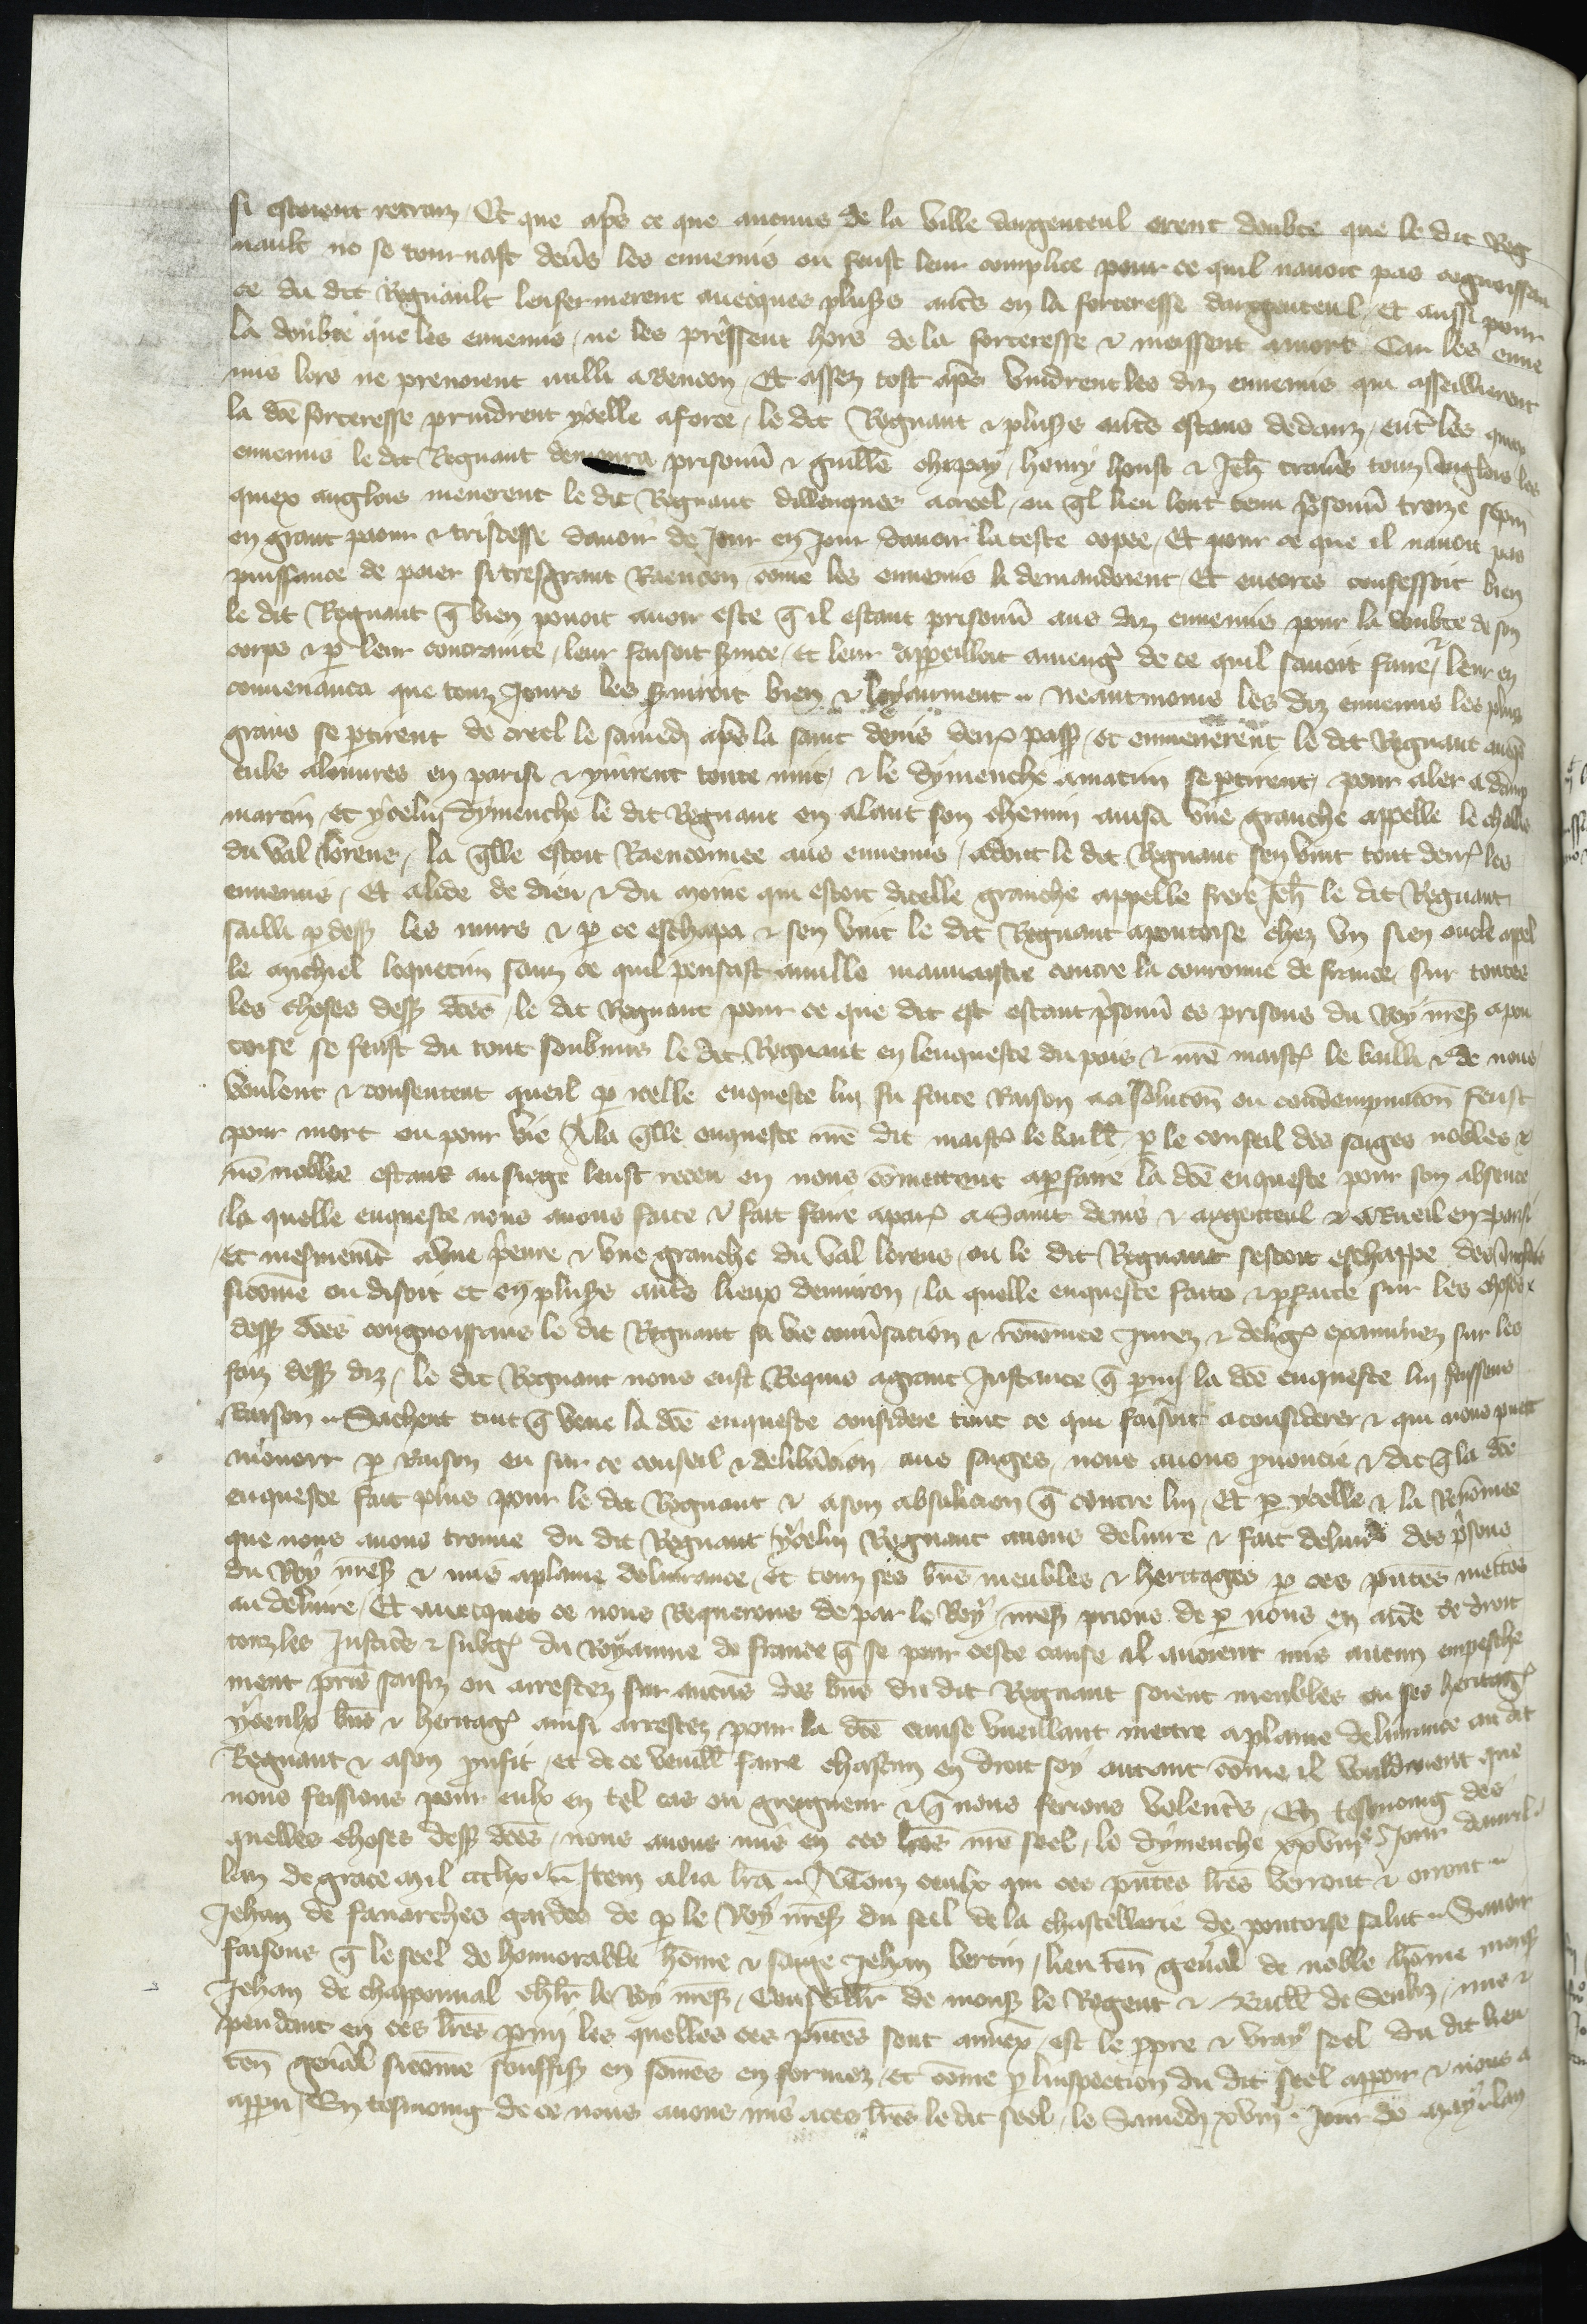 si estoient retraiz. Et que apres ce que aucuns de la ville dargenteul orent doubte que le dit Reg
nault ne se tournast devers les ennemis ou feust leur complice pour ce quil navoit pas cognoissan
ce du dit Regnault lenfermerent avecques plusrs autres en la forteresse dargenteul, Et aussi pour
la doubte que les ennemis ne les preissent hors de la forteresse et meissent a mort Car les enne
mis lors ne prenoient nulli a Rencon, Et assez tost apres vindrent les diz ennemis qui assaillierent
la dce forteresse, prindrent ycelle a force, le dit Regnaut et plusrs autres estans dedanz, entre les quex
ennemis le dit Regnaut demoura prisonnier et Guillme henry et Jeh touz Anglois les
quiex anglois menerent le dit Regnaut dillecques a creel, ou quel lieu lont tenu prisonnier treize sepm
en grant paour et tristesse davoir de Jour en Jour davoir la teste copee, Et pour ce que il navoit pas
puissance de paier si tresgrant Raencon come les ennemis li demandoient, Et encores confessoit bien
le dit Regnaut que bien povoit avoir este que il estant prisonnier aus diz ennemis pour la doubte de son
corps et par leur contrainte, leur faisoit service, et leur appareilloit a mengier de ce quil savoit faire, et leur en
convenanca que touz Jours les serviroit bien et loyaument .. Neantmoins les diz ennemis les plus
grans se partirent de creel le samedi apres la saint denis derr passe, et enmenerent le dit Regnaut avec
eulx a louvres en parisi et y vindrent toute nuit, et le dymenche a matin se partirent, pour aler a dam
martin, et ycelui dymenche le dit Regnaut en alant son chemin avisa une granche appelle le
du val lorens, la quelle estoit Raenconnee aus ennemis, adont le dit Regnaut sen vint tout derr les
ennemis, Et a lide de dieu et du moine qui estoit dicelle granche appelle frere Jeh le dit Regnaut
sailli par dess les murs et par ce eschapa et sen vint le dit Regnaut a pontoise chez un sien oncle apel
le michiel loquetin sanz ce quil pensast a nulle mauvaistie contre la couronne de france, sur toutes
les choses dess dces, le dit Regnaut pour ce que dit est estant prisonnier es prisons du Roy nres a pon
toise se feust du tout soubmis le dit Regnaut en lenqueste du pais et nre maistr le bailli et de nous
voulent et consentent que il par icelle enqueste lui fu faite Raison a absolucion ou condempnacion feust
pour mort ou pour vie A la quelle enqueste nre dit maistr le baill, par le conseil des sages nobles et
non nobles estanz au siege leust receu en nous comettent a parfaire la dce enqueste pour son absence
la quelle enqueste nous avons faite et fait faire a par a Saint denis et argenteul et a Rueil en parisi
Et mesmement a une et une granche du val lorens, ou le dit Regnaut sestoit eschappe des Anglois
sicomme on disoit et en plusrs autres lieux denviron, la quelle enqueste faite et parfaite sur les choses
dess dces congnoissans le dit Regnaut sa vie conversacion et renommee Jurez et dilig examinez sur les
faiz dess diz, le dit Regnaut nous eust Requis a grant Instance que parmi la dce enqueste lui feissons
Raison .. Sachent tuit que veue la dce enqueste considere tout ce qui faisoit a considerer et qui nous puet
mouvoir par Raison eu sur ce conseil et deliberacion aus sages, nous avons prononcie et dit que la dce
enqueste fait plus pour le dit Regnaut et a son absolucion que contre lui, Et par ycelle et la Renommee
que nous avons trouve du dit Regnaut ycelui Regnaut avons delivre et fait delivrer des prisons
du Roy nres et mis a plaine delivrance, et touz ses biens meubles et heritages par ces pntes mettons
au delivre, Et avecques ce nous Requerons de par le Roy nres prions de par nous en aide de droit
touz les Justiciers et subg du Royaume de france que se pour ceste cause il avoient mis aucun empesche
ment pris saisiz ou arrestez sur aucuns des biens du dit Regnaut soient meubles ou ses heritag
yceulx biens et heritag ainsi arrestez pour la dce cause vueillent mettre a plaine delivrance au dit
Regnaut et a son proufit, et de ce vueill faire chascun en droit soy autant come il vouldroient que
nous feissions pour eulx en tel cas ou greigneur et que nous ferions volentiers, En tesmoing des
quelles choses dess dces, nous avons mis en ces lres nre seel, le dymenche xxviiie Jour davril
lan de grace mil ccclx .. Item alia lra .. A Touz ceulx qui ces pntes lres verront et orront ..
Jehan de fanarches gardes de par le Roy nres du seel de la chastellerie de pontoise salut .. Savoir
faisons que le seel de honnorable home et sage Jehan bertin, lieuten general de noble home mons
Jehan de chapponval chlr le Roy nres, Conseillr de mons le Regent et Baill de Senliz, mis et
pendant en ces lres parmi les quelles ces pntes sont annex, est le propre et vray seel du dit lieu
ten general sicomme souffis en somes enformez, et come par linspection du dit seel appert et nous a
apparu, En tesmoing de ce nous avons mis a ces lres le dit seel, le Samedi xviii. Jour de may lan